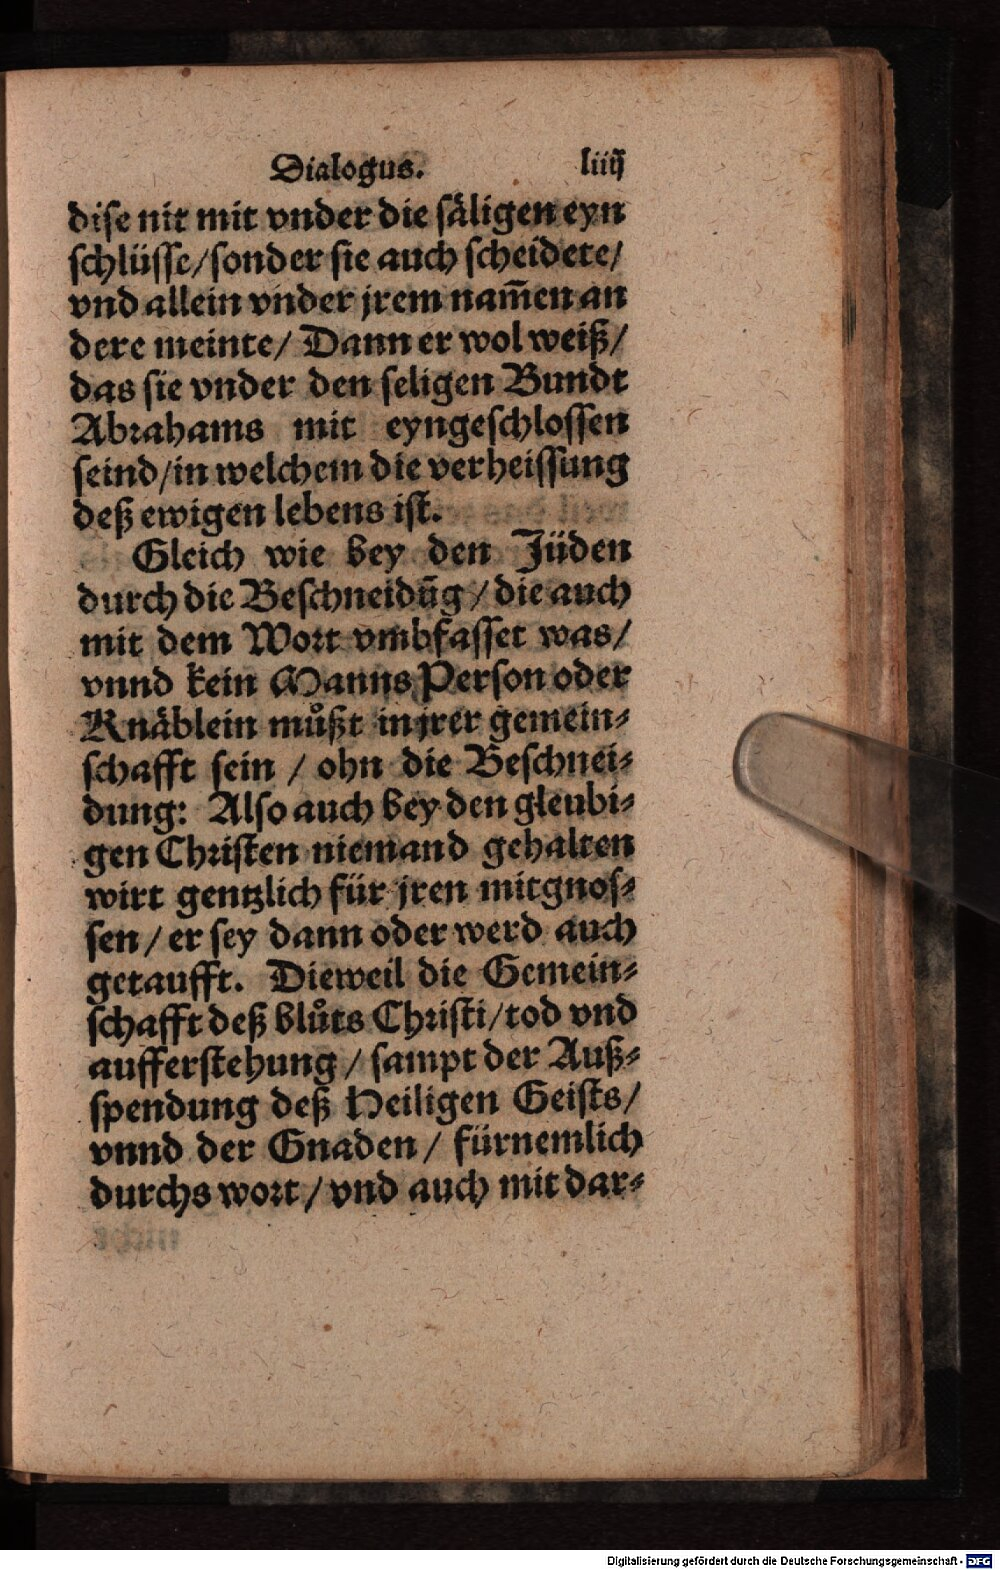 Dialogus. liiij
dise nit mit vnder die säligen eyn
schlüsse/sonder sie auch scheidete/
vnd allein vnder jrem nam̃en an
dere meinte/ Dann er wol weiß/
das sie vnder den seligen Bundt
Abrahams mit eyngeschlossen
seind/in welchem die verheissung
deß ewigen lebens ist.
Gleich wie bey den Jüden
durch die Beschneidũg/die auch
mit dem Wort vmbfasset was/
vnnd kein Manns Person oder
Knäblein můßt in jrer gemein⸗
schafft sein / ohn die Beschnei⸗
dung: Also auch bey den gleubi⸗
gen Christen niemand gehalten
wirt gentzlich für jren mitgnos⸗
sen / er sey dann oder werd auch
getaufft. Dieweil die Gemein⸗
schafft deß blůts Christi/tod vnd
aufferstehung / sampt der Auß⸗
spendung deß Heiligen Geists/
vnnd der Gnaden / fürnemlich
durchs wort/ vnd auch mit dar⸗
Digitalisierung gefördert durch die Deutsche Forschungsgemeinschaft - DFG